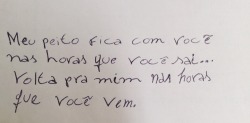 Meu peito fica com você
nas horas que você sai...
Volta pra mim nas horas
que você vem.